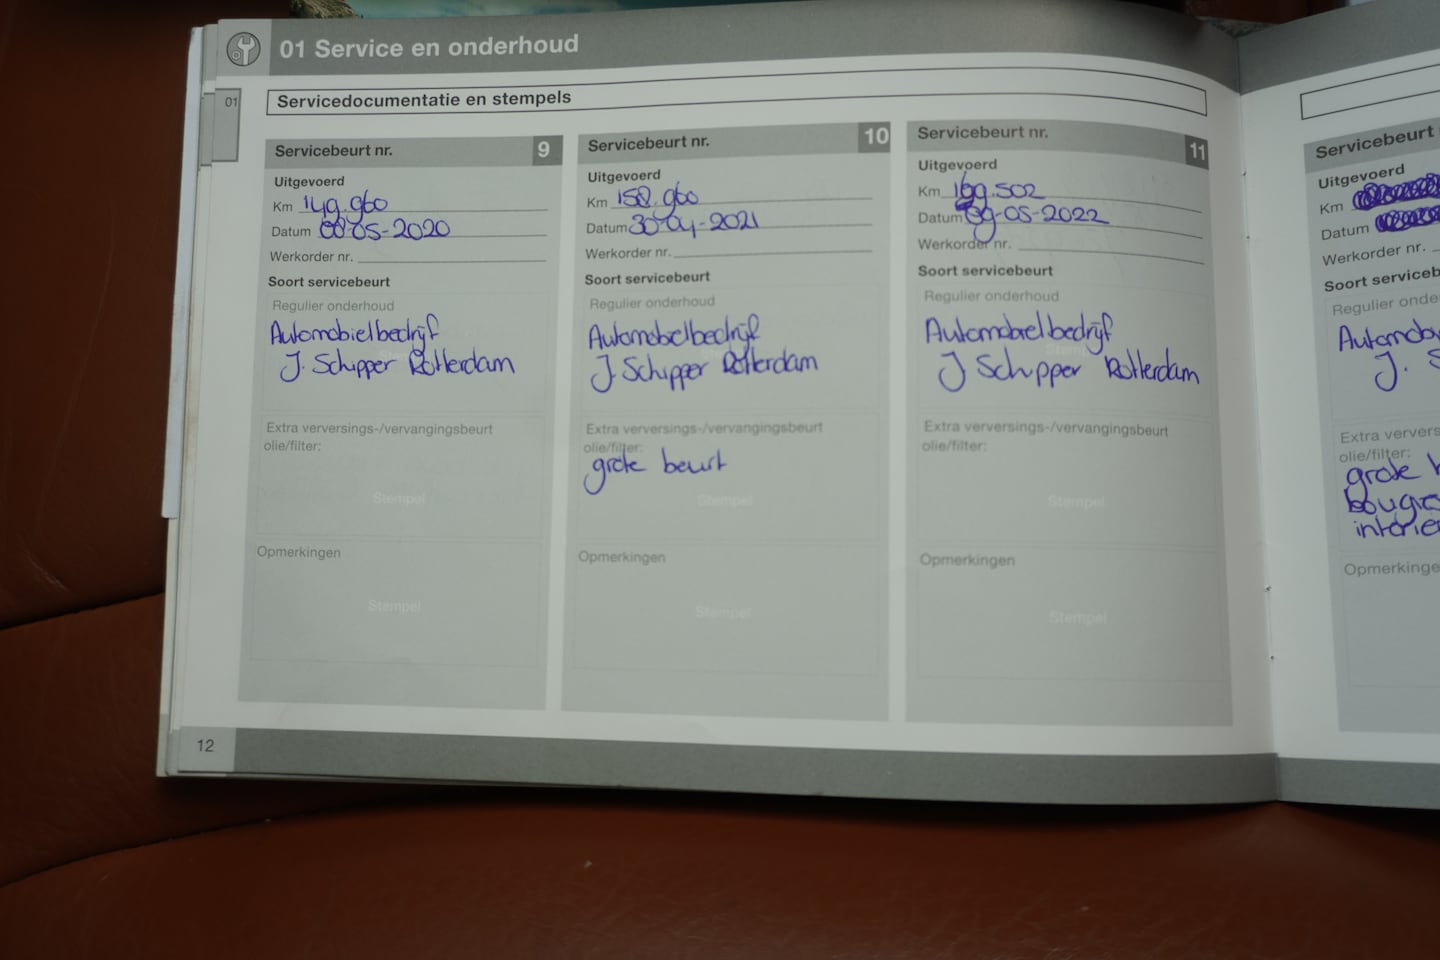 01 Service en onderhoud
01
Servicedocumentatie en stempels
Servicebeurt nr. 9
Uitgevoerd
Km 149.960
Datum 08-05-2020
Werkorder nr.
Soort servicebeurt
Regulier onderhoud
Automobielbedrijf
J. Schipper Rotterdam
Extra verversings-/vervangingsbeurt
olie/filter:
Stempel
Opmerkingen
Stempel
12
Servicebeurt nr. 10
Uitgevoerd
Km 158.960
Datum 30-04-2021
Werkorder nr.
Soort servicebeurt
Regulier onderhoud
Automobielbedrijf
J. Schipper Rotterdam
Extra verversings-/vervangingsbeurt
olie/filter:
grote beurt
Stempel
Opmerkingen
Stempel
Servicebeurt nr. 11
Uitgevoerd
Km 169.502
Datum 09-05-2022
Werkorder nr.
Soort servicebeurt
Regulier onderhoud
Automobielbedrijf
J Schipper Rotterdam
Extra verversings-/vervangingsbeurt
olie/filter:
Stempel
Opmerkingen
Stempel
Servicebeurt
Uitgevoerd
Km
Datum
Werkorder nr.
Soort serviceb
Regulier onde
Automob
J. S
Extra ververs
olie/filter:
grote
Opmerkinge